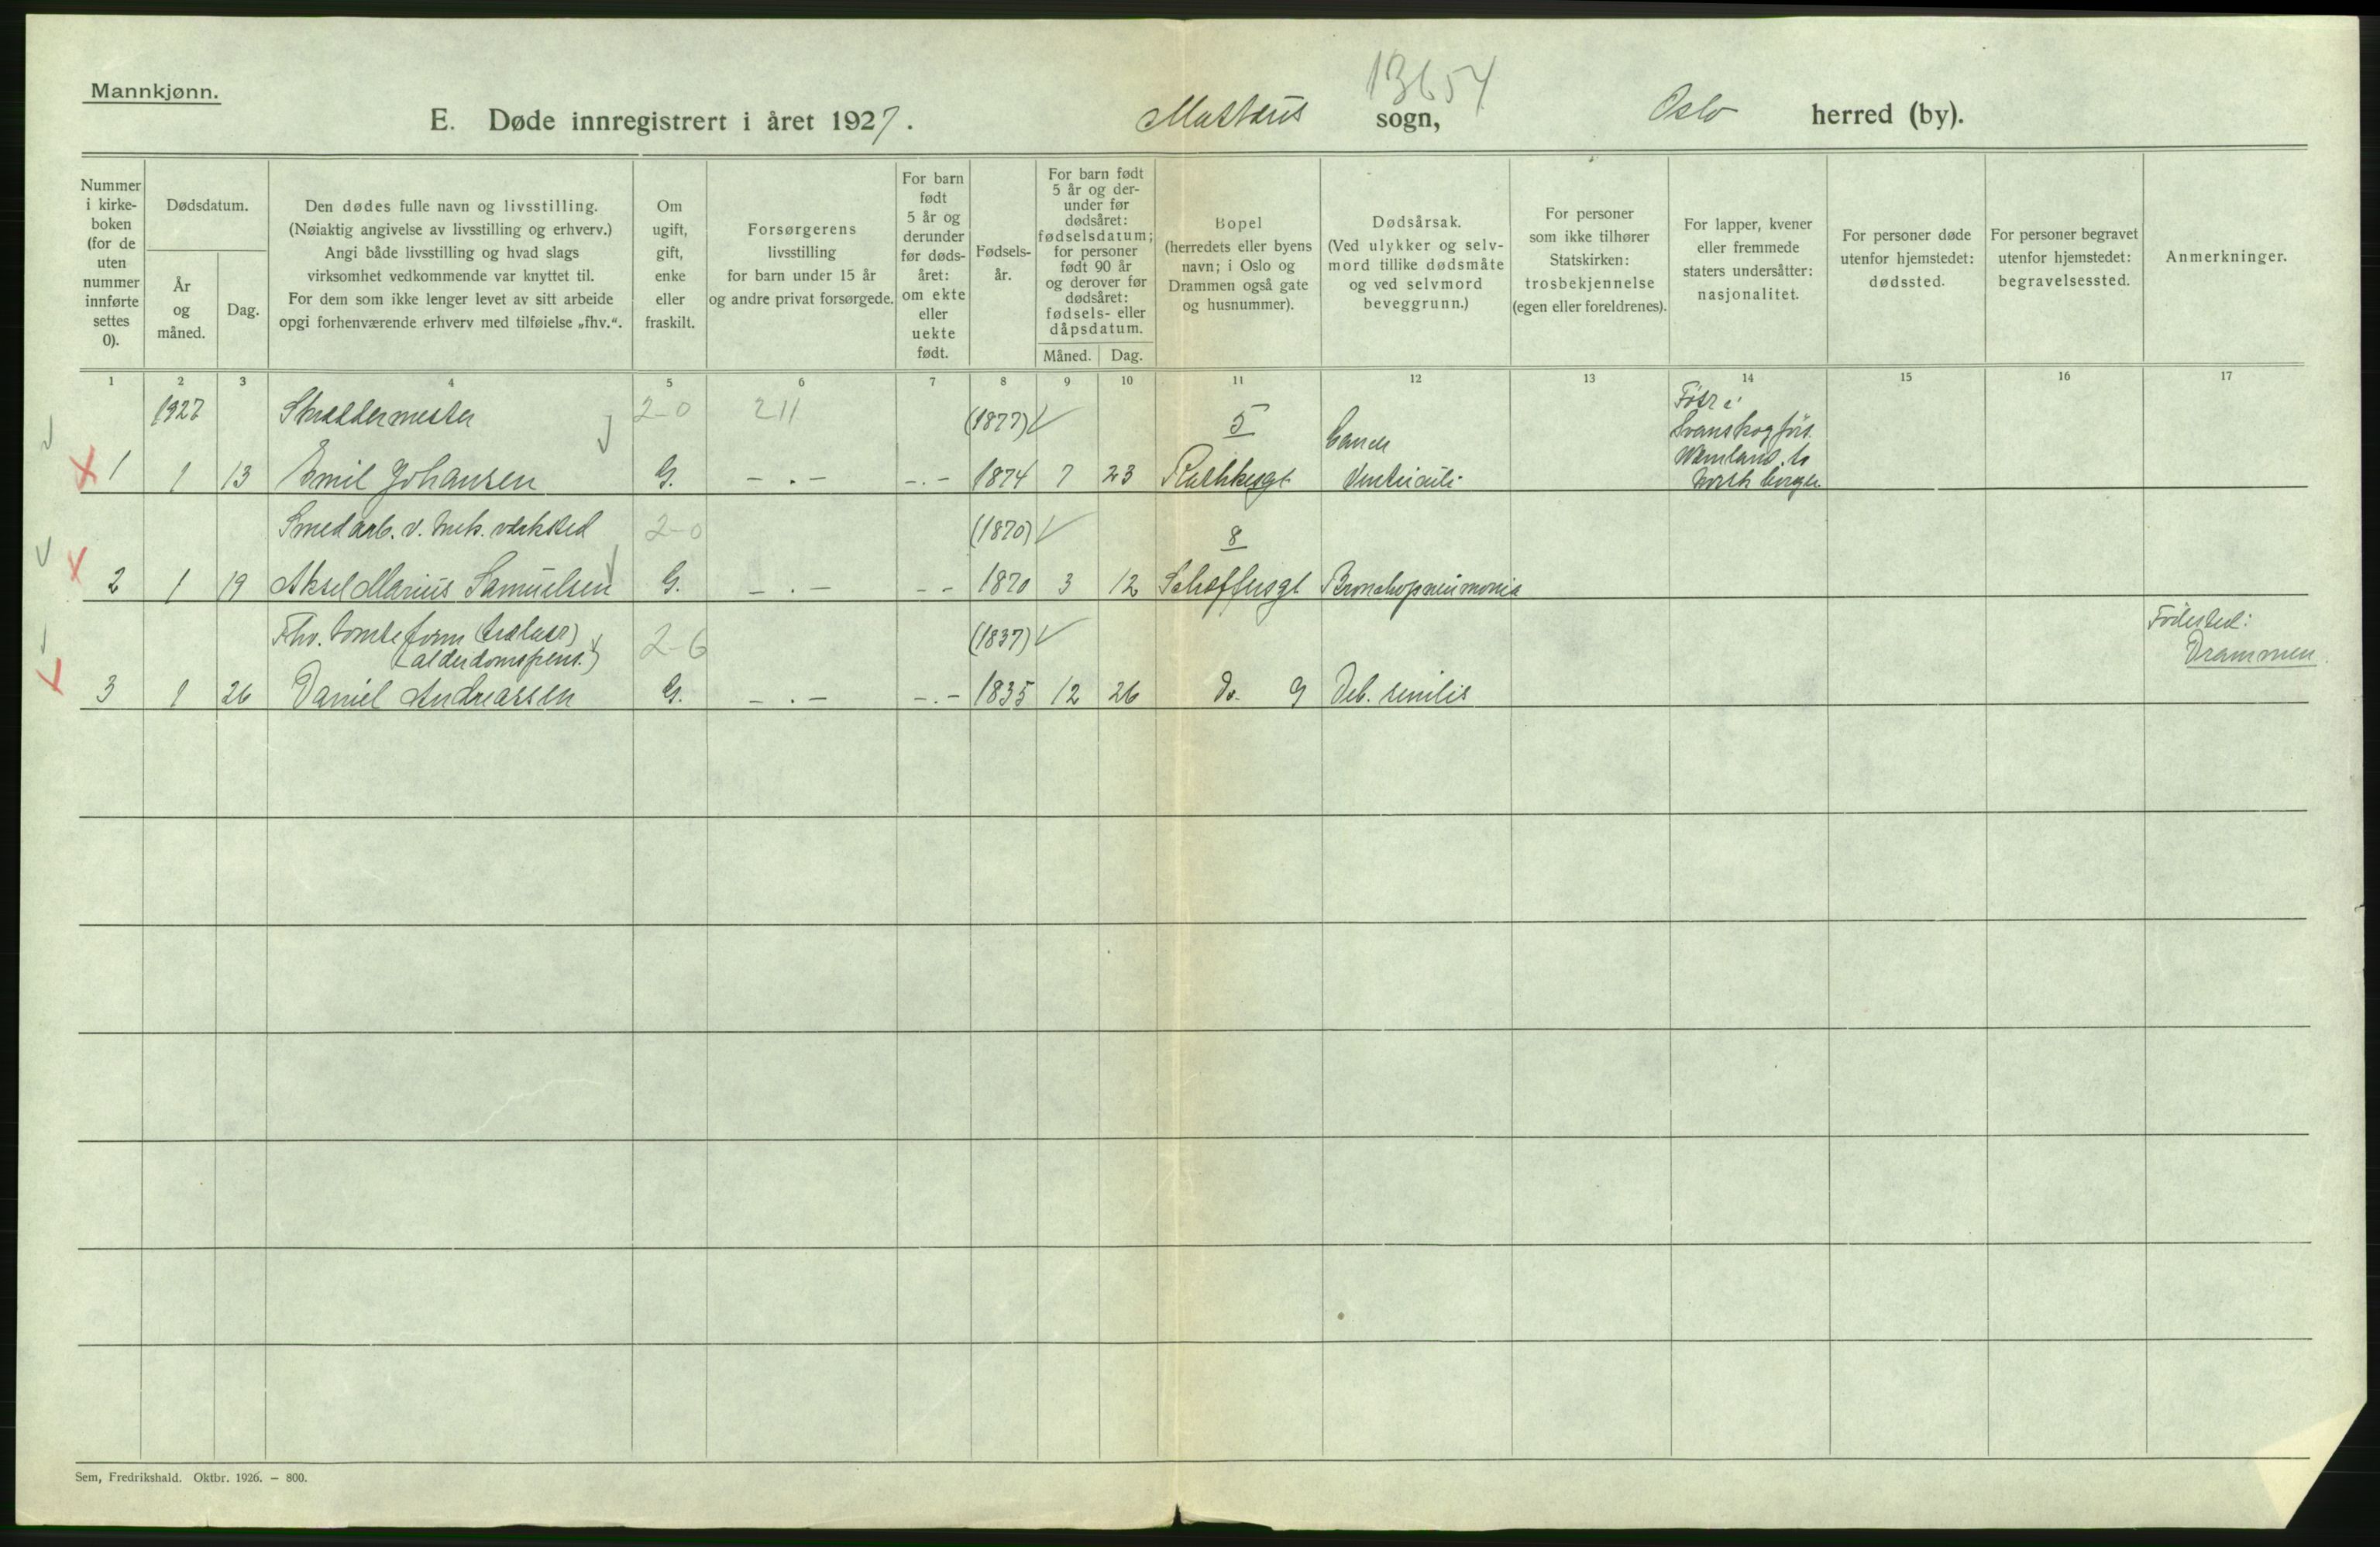 Mannkjønn.
13654
E. Døde innregistrert i året 1927. Mattæus sogn, Oslo herred (by).
Nummer
i kirke-
boken
(for de
uten
nummer
innførte
settes
0).
Dødsdatum.
År
og
måned.
Dag.
Den dødes fulle navn og livsstilling.
(Nøiaktig angivelse av livsstilling og erhverv.)
Angi både livsstilling og hvad slags
virksomhet vedkommende var knyttet til.
For dem som ikke lenger levet av sitt arbeide
opgi forhenværende erhverv med tilføielse „fhv.“.
Om
ugift,
gift,
enke
eller
fraskilt.
Forsørgerens
livsstilling
for barn under 15 år
og andre privat forsørgede.
For barn
født
5 år og
derunder
før døds-
året:
om ekte
eller
uekte
født.
Fødsels-
år.
For barn født
5 år og der-
under før
dødsåret:
fødselsdatum;
for personer
født 90 år
og derover før
dødsåret:
fødsels- eller
dåpsdatum.
Måned. Dag.
Bopel
(herredets eller byens
navn; i Oslo og
Drammen også gate
og husnummer).
Dødsårsak.
(Ved ulykker og selv-
mord tillike dødsmåte
og ved selvmord
beveggrunn.)
For personer
som ikke tilhører
Statskirken:
trosbekjennelse
(egen eller foreldrenes).
For lapper, kvener
eller fremmede
staters undersåtter:
nasjonalitet.
For personer døde
utenfor hjemstedet:
dødssted.
For personer begravet
utenfor hjemstedet:
begravelsessted.
Anmerkninger.
1 2 3 4 5 6 7 8 9 10 11 12 13 14 15 16 17
1927 Skreddermester 2-0 211 (1877) 5 Født i
Svanskog förs.
Cancer
Wemland,
1 1 13 Emil Johansen G. - . - - . - 1874 7 23 Rathkesgt Ventriculi norsk borger
Smedarb. v. mek. verksted 2-0 (1870) 8
2 1 19 Aksel Marius Samuelsen G. - . - - - 1870 3 12 Schæffersgt Bronchopneumonia
Fhv. tomteform. (trælast) 2-6 (1837) Fødested:
(alderdomspens.) Drammen.
3 1 26 Daniel Andreassen G. - . - - . - 1835 12 26 Do. 9 Deb. senilis
Sem, Fredrikshald. Oktbr. 1926. – 800.